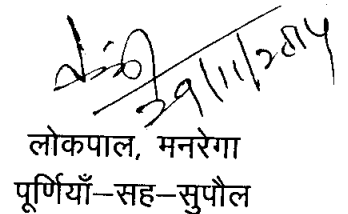 29/11/2014
लोकपाल, मनरेगा
पूर्णियाँ–सह–सुपौल